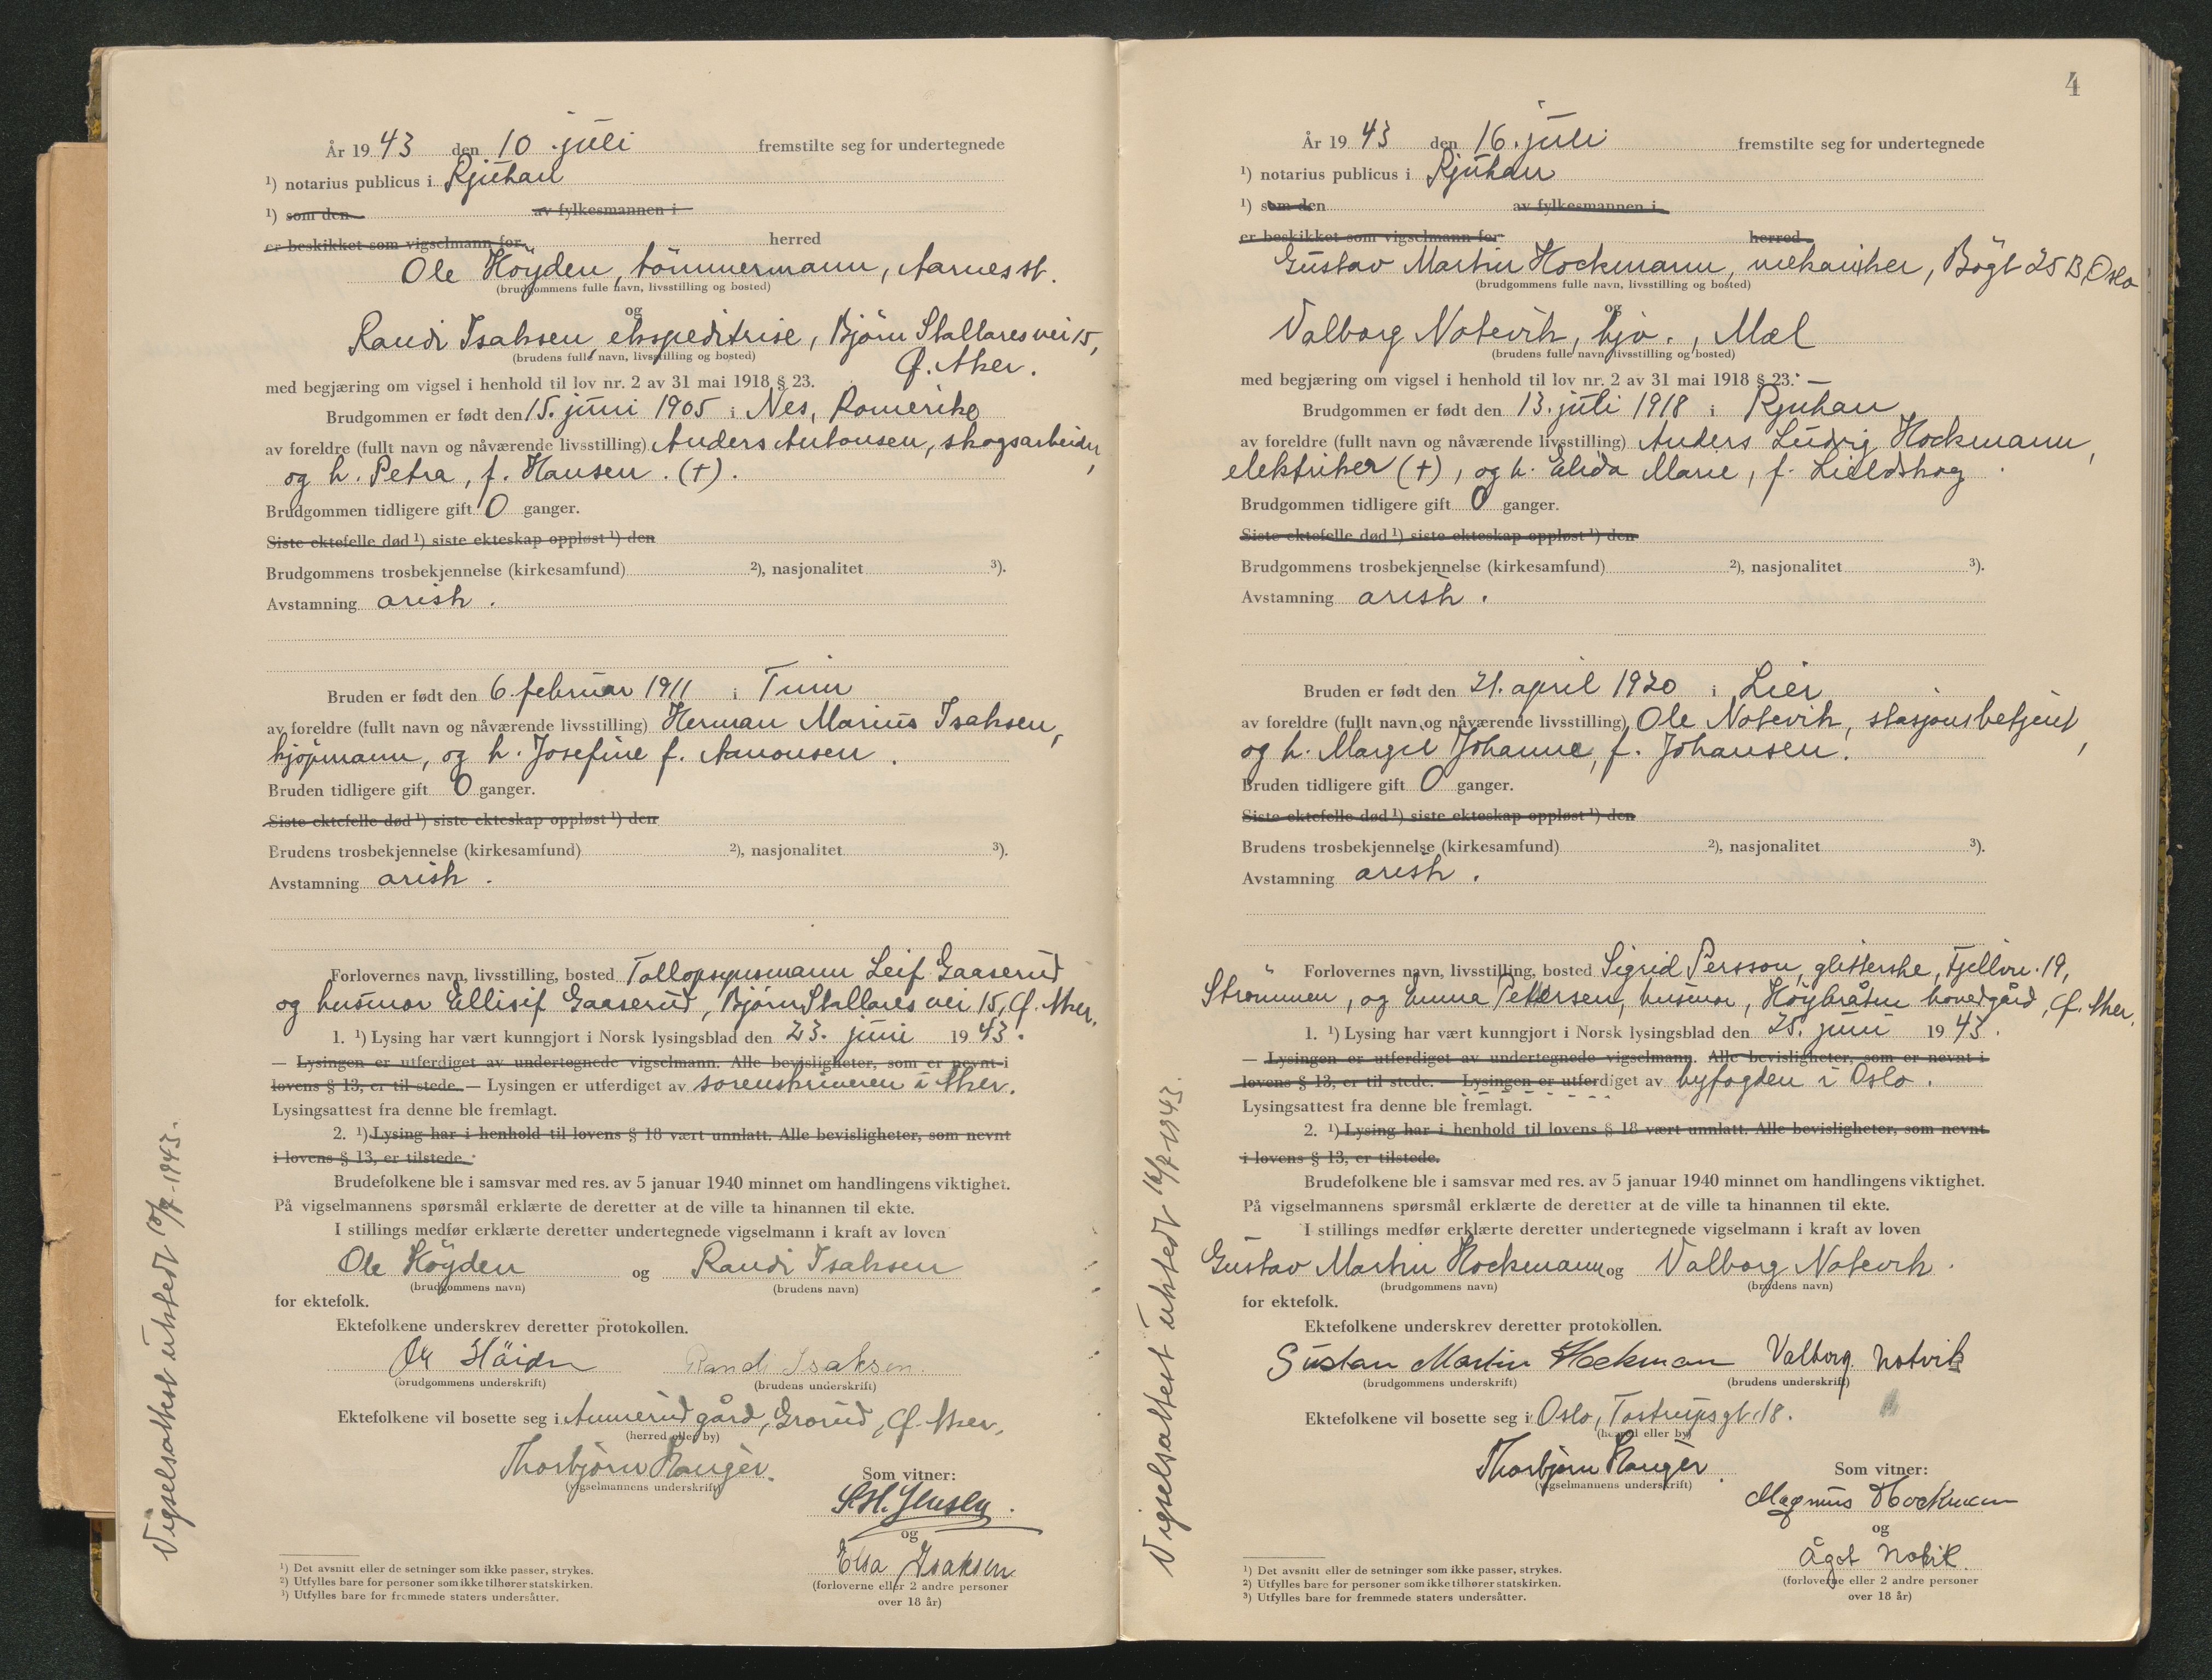 År 1943 den 10. juli fremstilte seg for undertegnede
¹) notarius publicus i Rjukan
¹) som den av fylkesmannen i
er beskikket som vigselmann for herred
Ole Höyden, tömmermann, Aarnes st.
(brudgommens fulle navn, livsstilling og bosted)
og
Randi Isaksen, ekspeditrise, Björn Stallares vei 15,
(brudens fulle navn, livsstilling og bosted)
Ø. Aker.
med begjæring om vigsel i henhold til lov nr. 2 av 31 mai 1918 § 23.
Brudgommen er født den 15. juni 1905 i Nes, Romerike
av foreldre (fullt navn og nåværende livsstilling) Anders Antonsen, skogsarbeider,
og h. Petra, f. Hansen. (†).
Brudgommen tidligere gift 0 ganger.
Siste ektefelle død ¹) siste ekteskap oppløst ¹) den
Brudgommens trosbekjennelse (kirkesamfund) ²), nasjonalitet ³).
Avstamning arisk.
Bruden er født den 6. februar 1911 i Tinn
av foreldre (fullt navn og nåværende livsstilling) Herman Marius Isaksen,
kjöpmann, og h. Josefine f. Aamonsen.
Bruden tidligere gift 0 ganger.
Siste ektefelle død ¹) siste ekteskap oppløst ¹) den
Brudens trosbekjennelse (kirkesamfund) ²), nasjonalitet ³).
Avstamning arisk.
Forlovernes navn, livsstilling, bosted Tollopsynsmann Leif Gaaserud
og husmor Ellisif Gaaserud, Björn Stallares vei 15, Ø. Aker.
1. ¹) Lysing har vært kunngjort i Norsk lysingsblad den 23. juni 1943.
— Lysingen er utferdiget av undertegnede vigselmann. Alle bevisligheter, som er nevnt i
lovens § 13, er til stede. — Lysingen er utferdiget av sorenskriveren i Aker.
Lysingsattest fra denne ble fremlagt.
2. ¹) Lysing har i henhold til lovens § 18 vært unnlatt. Alle bevisligheter, som nevnt
i lovens § 13, er tilstede.
Brudefolkene ble i samsvar med res. av 5 januar 1940 minnet om handlingens viktighet.
På vigselmannens spørsmål erklærte de deretter at de ville ta hinannen til ekte.
I stillings medfør erklærte deretter undertegnede vigselmann i kraft av loven
Ole Höyden og Randi Isaksen
(brudgommens navn) (brudens navn)
for ektefolk.
Ektefolkene underskrev deretter protokollen.
Ole Höiden Randi Isaksen
(brudgommens underskrift) (brudens underskrift)
Ektefolkene vil bosette seg i Ammerud gård, Grorud, Ø. Aker.
(herred eller by)
Thorbjörn Hauger.
(vigselmannens underskrift)
Som vitner:
Jensen.
og
Elsa Isaksen
(forloverne eller 2 andre personer
over 18 år)
¹) Det avsnitt eller de setninger som ikke passer, strykes.
²) Utfylles bare for personer som ikke tilhører statskirken.
³) Utfylles bare for fremmede staters undersåtter.
Vigselsattest utstedt 10/7-1943.
4
År 1943 den 16. juli fremstilte seg for undertegnede
¹) notarius publicus i Rjukan
¹) som den av fylkesmannen i
er beskikket som vigselmann for herred
Gustav Martin Hockmann, mekaniker, Bögt 25 B, Oslo
(brudgommens fulle navn, livsstilling og bosted)
og
Valborg Notevik, hjv., Mæl
(brudens fulle navn, livsstilling og bosted)
med begjæring om vigsel i henhold til lov nr. 2 av 31 mai 1918 § 23. —
Brudgommen er født den 13. juli 1918 i Rjukan
av foreldre (fullt navn og nåværende livsstilling) Anders Ludvig Hockmann,
elektriker (†), og h. Elida Marie, f.
Brudgommen tidligere gift 0 ganger.
Siste ektefelle død ¹) siste ekteskap oppløst ¹) den
Brudgommens trosbekjennelse (kirkesamfund) ²), nasjonalitet ³).
Avstamning arisk.
Bruden er født den 21. april 1920 i Lier
av foreldre (fullt navn og nåværende livsstilling) Ole Notevik, stasjonsbetjent,
og h. Margit Johanne, f. Johansen.
Bruden tidligere gift 0 ganger.
Siste ektefelle død ¹) siste ekteskap oppløst ¹) den
Brudens trosbekjennelse (kirkesamfund) ²), nasjonalitet ³).
Avstamning arisk.
Forlovernes navn, livsstilling, bosted Sigrid Persson, glitterske, Fjellvn. 19,
Strømmen, og Emma Pettersen, husmor, Höybråten hovedgård, Ø. Aker.
1. ¹) Lysing har vært kunngjort i Norsk lysingsblad den 25. juni 1943.
— Lysingen er utferdiget av undertegnede vigselmann. Alle bevisligheter, som er nevnt i
lovens § 13, er til stede. — Lysingen er utferdiget av byfogden i Oslo.
Lysingsattest fra denne ble fremlagt.
2. ¹) Lysing har i henhold til lovens § 18 vært unnlatt. Alle bevisligheter, som nevnt
i lovens § 13, er tilstede.
Brudefolkene ble i samsvar med res. av 5 januar 1940 minnet om handlingens viktighet.
På vigselmannens spørsmål erklærte de deretter at de ville ta hinannen til ekte.
I stillings medfør erklærte deretter undertegnede vigselmann i kraft av loven
Gustav Martin Hockmann og Valborg Notevik.
(brudgommens navn) (brudens navn)
for ektefolk.
Ektefolkene underskrev deretter protokollen.
Gustav Martin Hockman Valborg Notvik
(brudgommens underskrift) (brudens underskrift)
Ektefolkene vil bosette seg i Oslo, Tostrups gt. 18.
(herred eller by)
Thorbjörn Hauger.
(vigselmannens underskrift)
Som vitner:
Magnus Hockman
og
Ågot Notvik.
(forloverne eller 2 andre personer
over 18 år)
¹) Det avsnitt eller de setninger som ikke passer, strykes.
²) Utfylles bare for personer som ikke tilhører statskirken.
³) Utfylles bare for fremmede staters undersåtter.
Vigselsattest utstedt 16/7-1943.